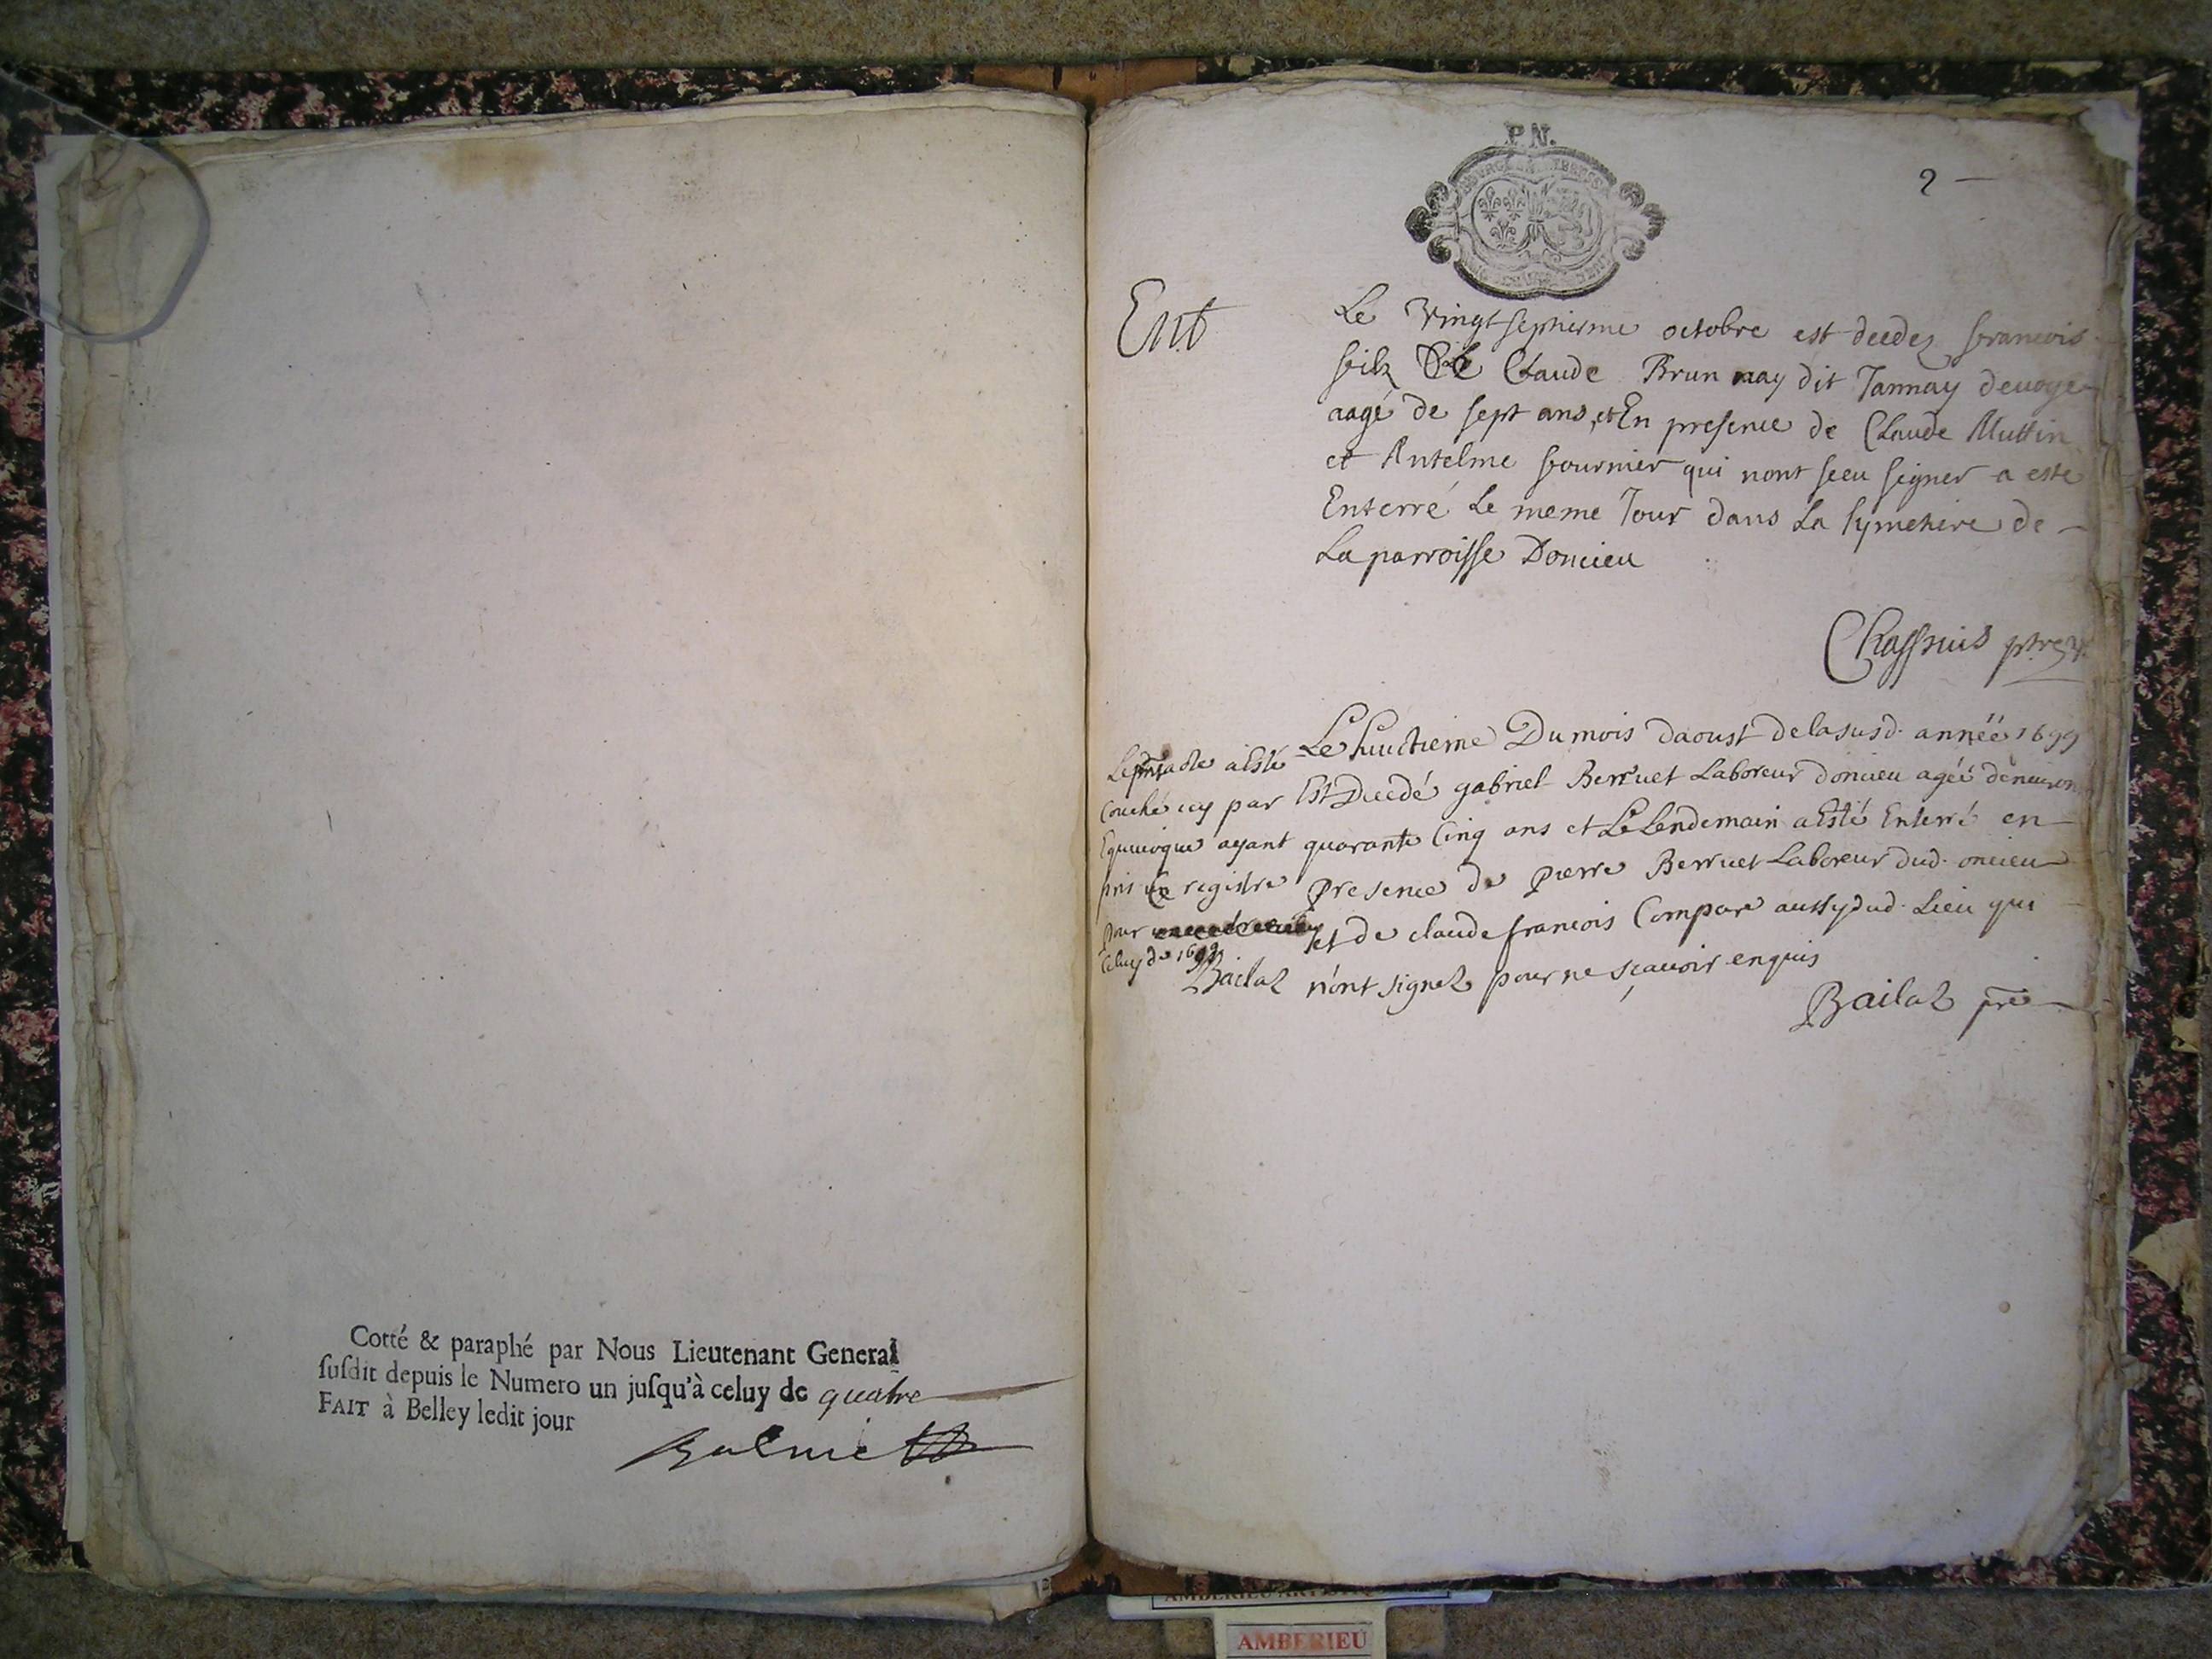 Cotté & paraphé par Nous Lieutenant General
suſdit depuis le Numero un juſqu'à celuy de quatre
FAIT à Belley ledit jour
Balme
P.N.
2
Ent
Le vingt septiesme octobre est decedez francois
filz de Claude Brun nay dit Jannay
aagé de sept ans, et En presence de Claude Muttin
et Antelme fournier qui nont sceu signer a esté
Enterré Le meme Jour dans La symetiere de
La parroisse Doncieu
Le huictieme Du mois daoust de la susd. année 1699
Est Decedé gabriel Berruet Laboreur doncieu agéé denuiron
quarante Cinq ans et Le Lendemain a Esté Enterré en
presence de pierre Berruet Laboreur dud. oncieu
et de claude francois Compare aussy dud. Lieu qui
n'ont signez pour ne sçauoir enquis
Bailaz pre
Le pnt acte a Esté
couché icy par
Equiuoque ayant
pris Ce registre
pour
Celuy de 1699
Bailaz
AMBERIEU